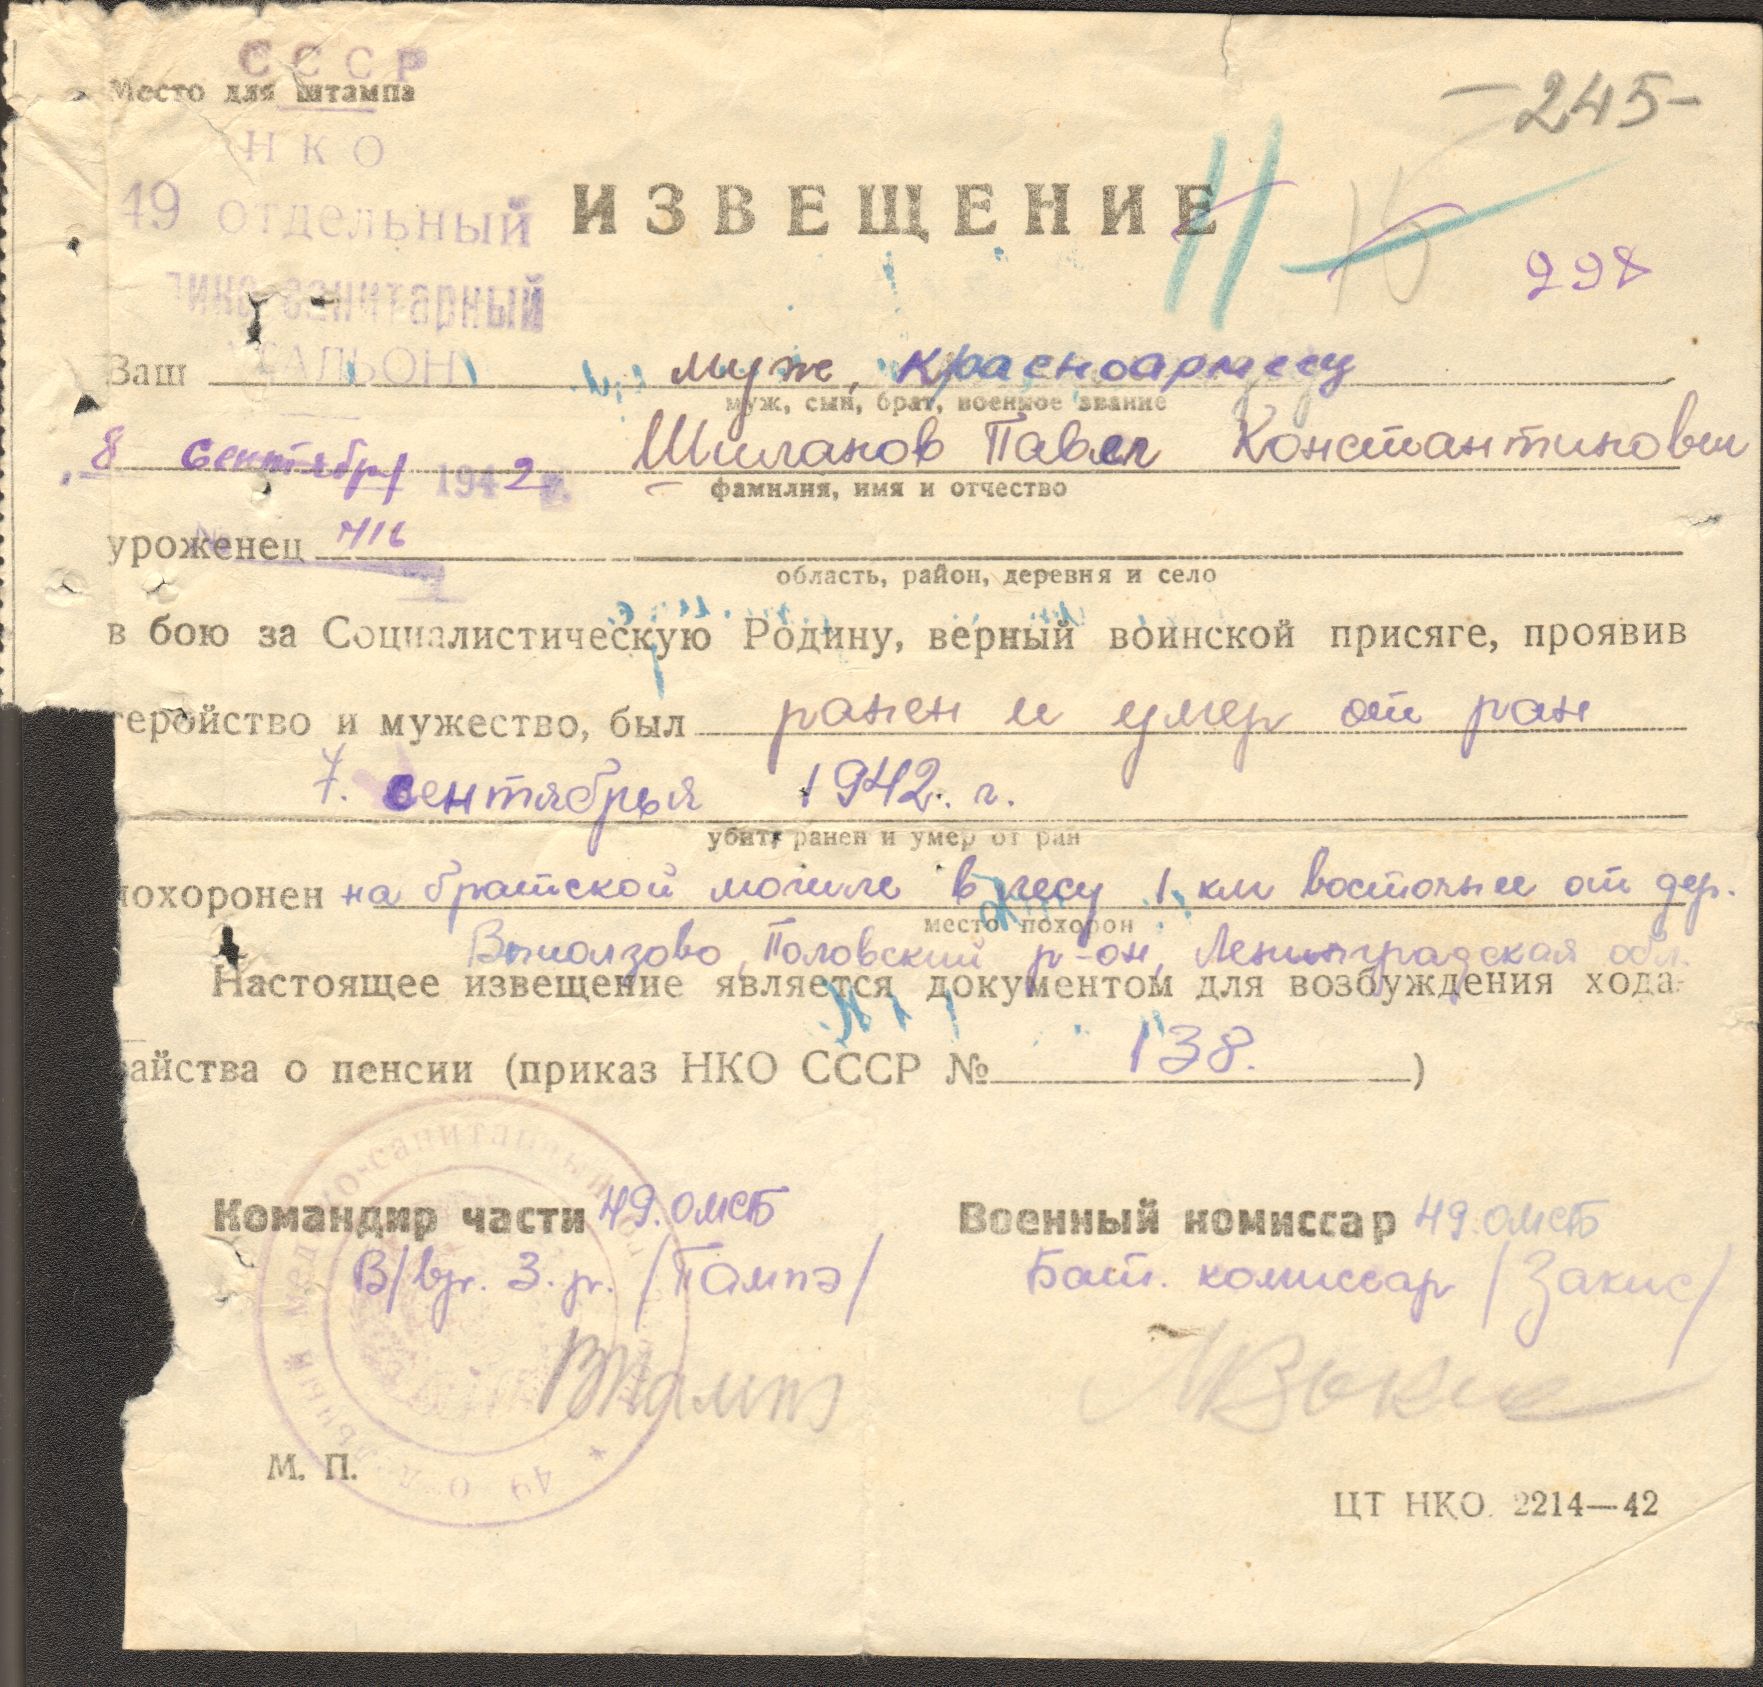 СССР
Место для штампа
НКО
49 отдельный
санитарный
-245-
ИЗВЕЩЕНИЕ
998
Ваш муж, красноармеец
муж, сын, брат, военное звание
8 сентября 1942 г.
Павел Константинович
фамилия, имя и отчество
№ 416
уроженец
область, район, деревня и село
в бою за Социалистическую Родину, верный воинской присяге, проявив
геройство и мужество, был ранен и умер от ран
7. сентября 1942. г.
убит, ранен и умер от ран
похоронен на братской могиле в лесу 1 км восточнее от дер.
место похорон
Выползово, р-он, Ленинградская обл.
Настоящее извещение является документом для возбуждения хода-
айства о пенсии (приказ НКО СССР № 138.)
Командир части 49.ОМСБ
В/вр. 3. р. /Пампэ/
Военный комиссар 49.ОМСБ
Бат. комиссар /Закис/
М. П.
ЦТ НКО. 2214—42